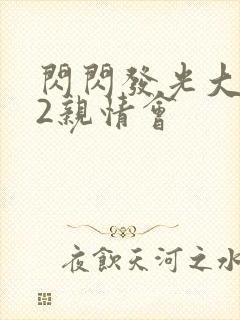 閃閃發光大
2親情會
夜飲天河之水